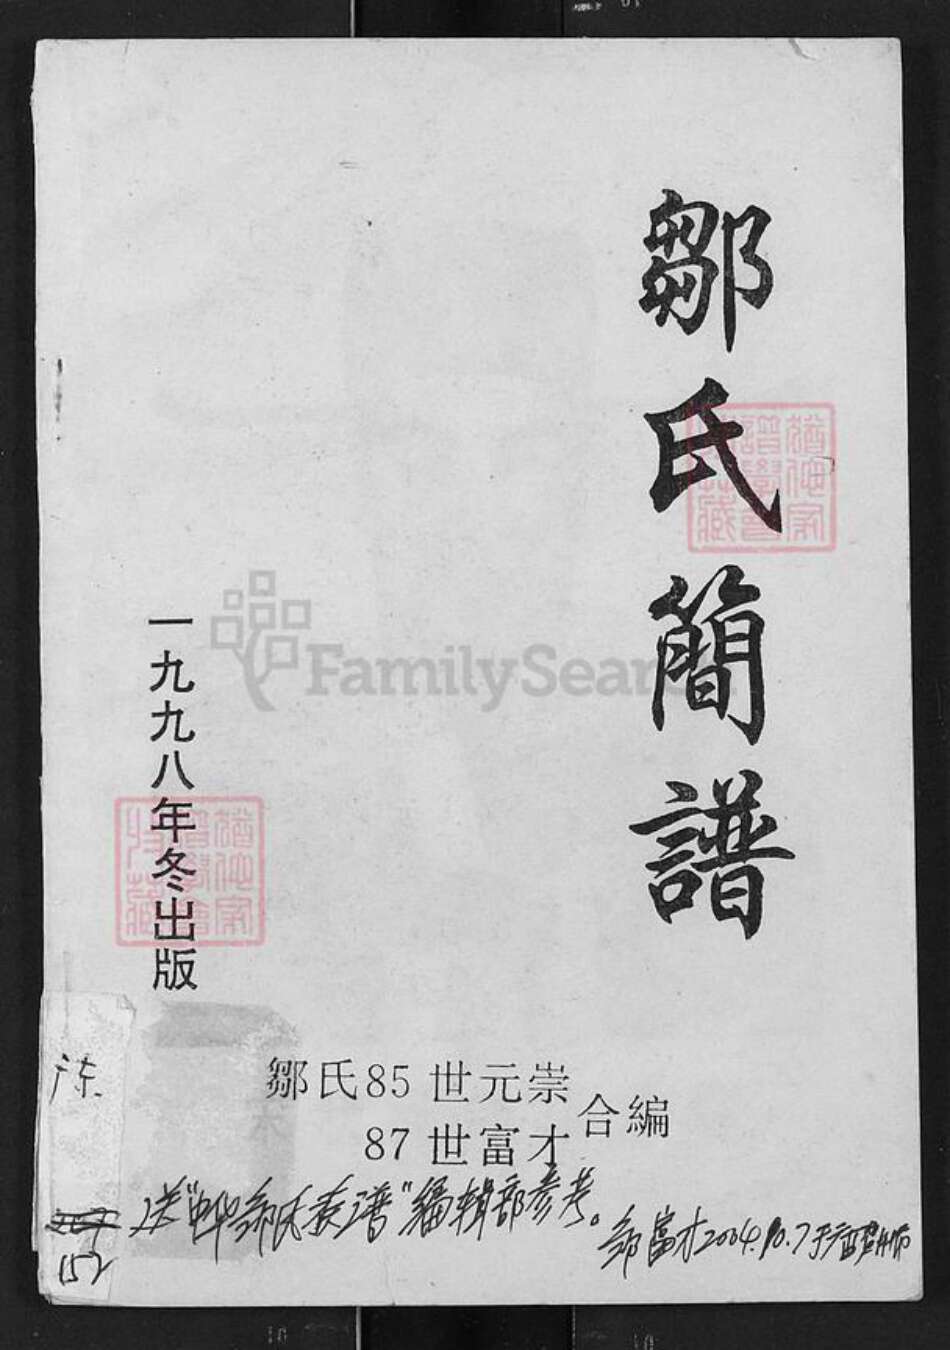 鄒氏簡譜
一九九八年冬出版
鄒氏85世元崇
87世富才
合編
广东
送"中华邹氏族谱"编辑部参考。
邹富才2004.10.7于
152
FamilySearch